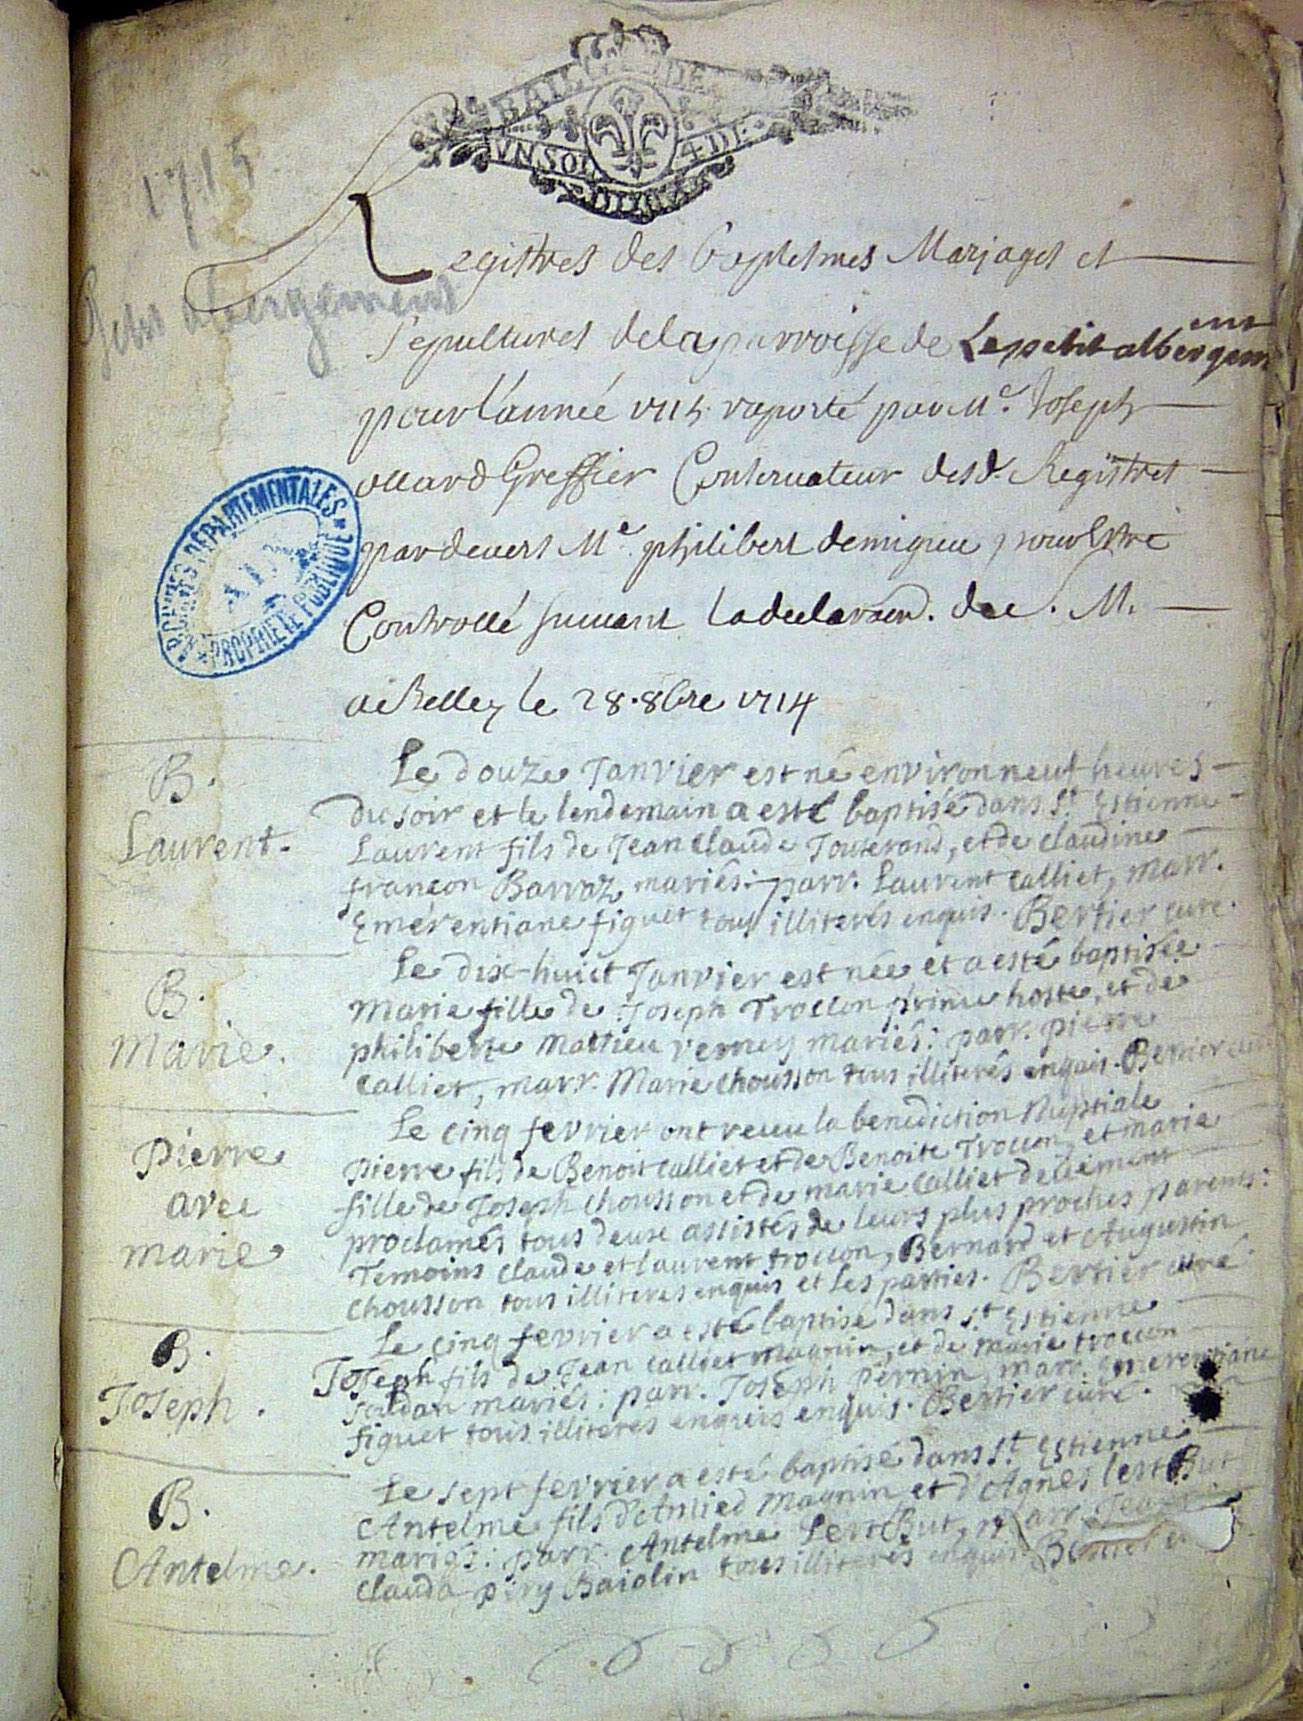 BAIL DE
UN SOL 4 DE
DIX
1715
Registres des Baptesmes Mariages et
Petit abergement
Sepultures de la parroisse de Le petit albergem
ent
pour l'année 1715 raporté par Me. Joseph
ollard Greffier Conservateur desd. Registres
ARCHIVES DÉPARTEMENTALES
AIN
PROPRIÉTÉ PUBLIQUE
pardevers Me philibert demigieu pour Estre
Controllé suivant la declaraon. de M.
a Belley le 28. 8bre 1714
B.
Laurent.
Le douze Janvier est né environ neuf heures
du soir et le lendemain a esté baptisé dans St Estienne
Laurent fils de Jean Claude Jouterand, et de claudine
françon Barraz mariés: parr. Laurent Calliet, marr.
Emerentiane figuet tous illiterés enquis. Bertier curé.
B.
Marie.
Le dix-huict Janvier est née et a esté baptisée
Marie fille de Joseph Trocon prime hoste, et de
philiberte Mattieu verney mariés: parr. pierre
Calliet, marr. Marie Chousson tous illiterés enquis. Bertier curé
Pierre
avec
marie
Le cinq fevrier ont receu la benediction Nuptiale
pierre fils de Benoit Calliet et de Benoite Trocon, et marie
fille de Joseph Chousson et de marie Calliet decëment
proclamés tous deux assistés de leurs plus proches parents:
Temoins claude et laurent trocon, Bernard et Augustin
Chousson tous illiteres enquis et les parties. Bertier curé
B.
Joseph.
Le cinq fevrier a esté baptisé dans st Estienne
Joseph fils de Jean Calliet magnin, et de marie trocon
soudan mariés: parr. Joseph pernin, marr. emerentiane
figuet tous illiteres enquis enquis. Bertier curé.
B.
Antelme.
Le sept fevrier a esté baptisé dans St Estienne
Antelme fils d'Amied Magnin et d'Agnes lest But
mariés: parr. Antelme Lest But, marr. Jeanne
Clauda piry Baiolin tous illiterés enquis. Bertier